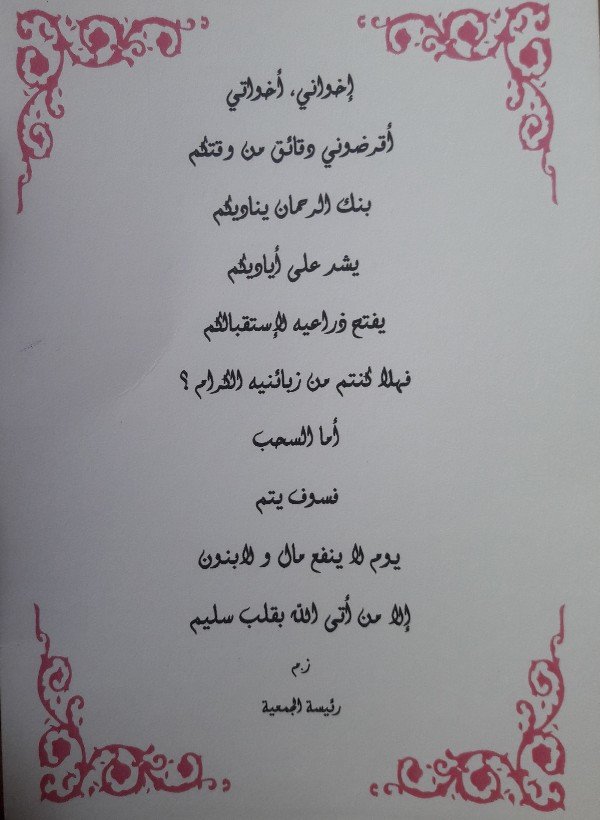 إخواني، أخواتي
أقرضوني دقائق من وقتكم
بنك الرحمان يناديكم
يشد على أياديكم
يفتح ذراعيه لإستقبالكم
فهلا كنتم من زبائنيه الكرام ؟
أما السحب
فسوف يتم
يوم لا ينفع مال و لابنون
إلا من أتى الله بقلب سليم
ز.م
رئيسة الجمعية